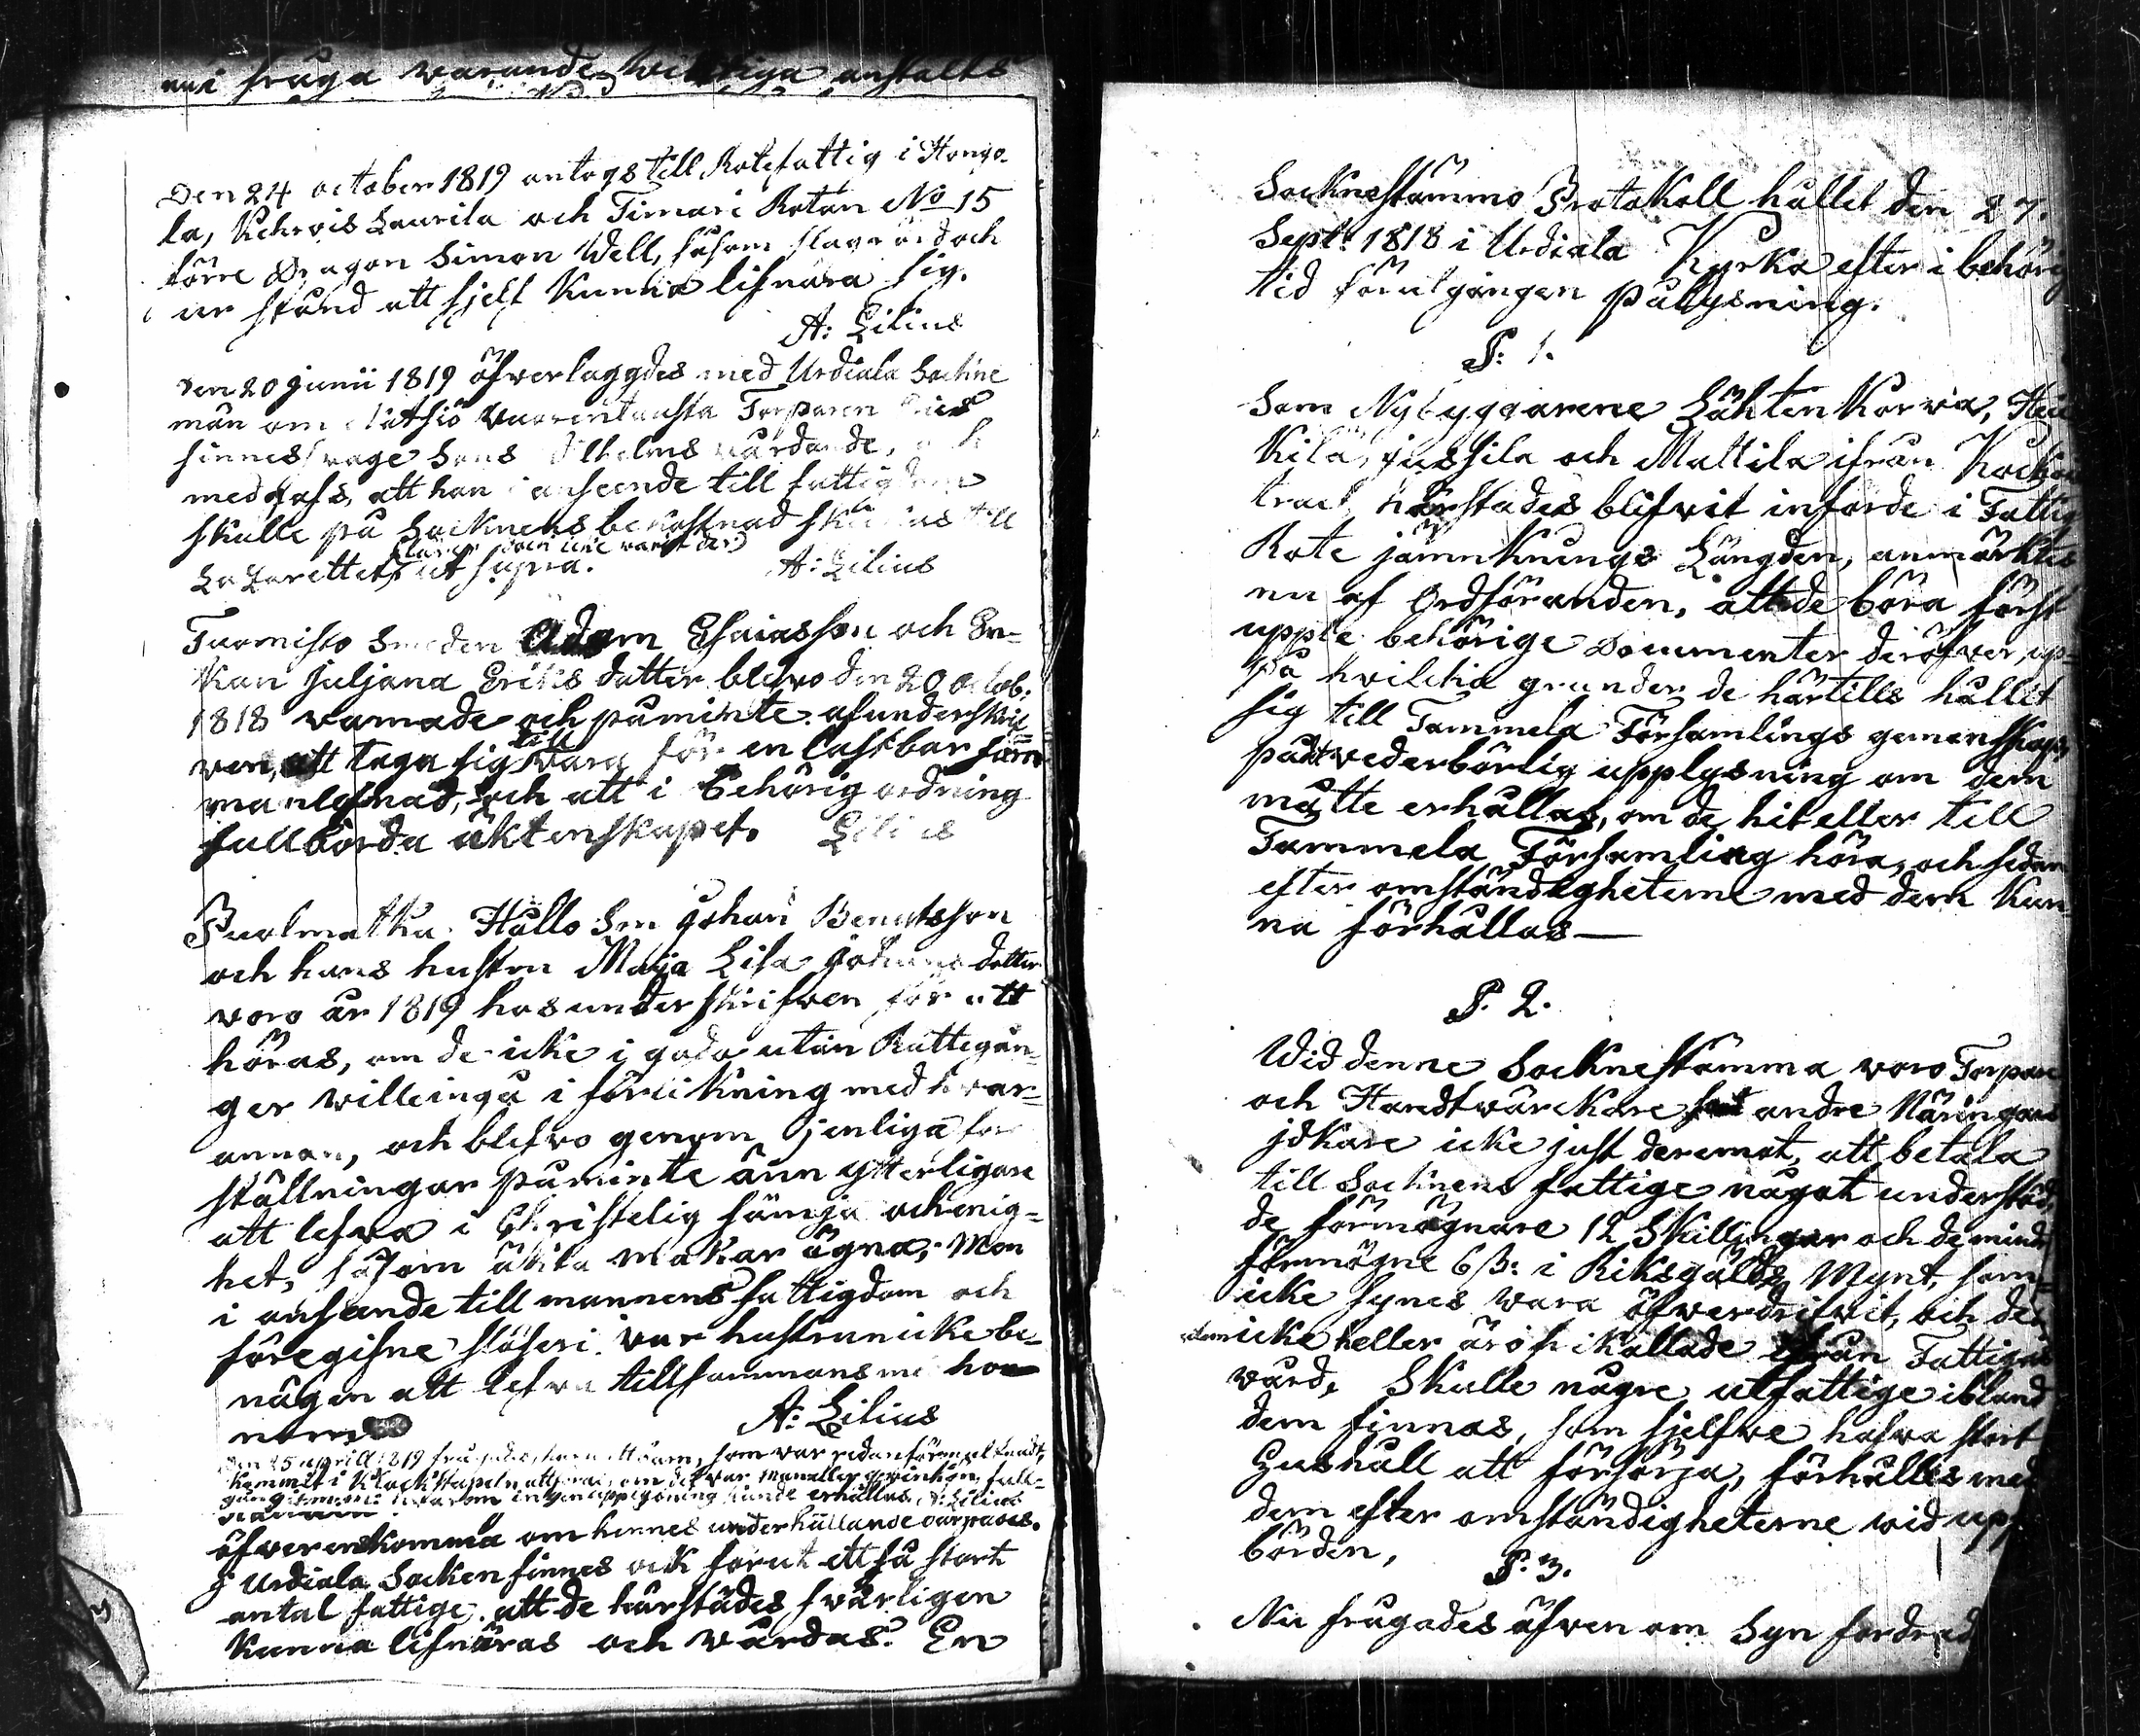 nu i fråga warande wichtiga anstalts
Den 24 october 1819 antogs till Rotefattig i Hongo-
la, Kehrois Laurila och Timari Rotan No 15
förre Dragon Simon Well, såsom slagrörd och
ur stånd att sjelf kunna lifnära sig.
A: Lilius
Den 20 junii 1819 öfverlaggdes med Urdiala Sockne
män om Vuorentausta Torparen
sinnessvage Sons Wilhelms vårdande,
medgafs, att han i anseende till fattigdom
skulle på Socknens bekostnad skickas till
Lazarettet ut supra.
A: Lilius
Smeden Adam Esaiasson och En-
kan Juljana Eriks dotter blefvo den 20 octob.
1818 varnade och påminte af underskrif-
ven, att taga sig till vara för en lastbar sam
manlefnad, och att i behörig ordning
fullborda äktenskapet. Lilius
Puolmatka Hållo Son Johan Bengtsson
och hans hustru Maja Lisa Johans dotter
voro år 1819 hos underskrifven för att
höras, om de icke i godo utan Rättegån-
ger villeingå i förlikning med hvar-
annan, och blefvo genom jenliga före
ställningar påminte änn ytterligare
att lefva i Christelig sämja och enig-
het, såsom äkta makar ägna; Men
i anseende till mannens fattigdom och
föregifne slöseri var hustrun icke be-
nägen att lefva tillsammans med ho
nom
A: Lilius
Den 25 april 1819 som var redan
kommit i Klockstapeln
ingen upplysning kunde erhållas. A: Lilius
öfverenskomma om hennes underhållande
I Urdiala Socken finnes ock förut ett så stort
antal fattige, att de härstädes svårligen
kunna lifnäras och vårdas. En
Socknestämmo Protokoll hållet den 27.
Sept: 1818 i Urdiala Kyrka efter i behörig
tid förutgången pålysning.
§: 1.
Som Nybyggarene Lähtenkorva, Hei
kilä, Jussila och Mattila ifrån
härstädes blifvit införde i Fattig
Rote jämnknings Längden, anmärktes
nu af Ordföranden, att de böra först
uppte behörige Documenter deröfver, up-
på hvilcka grunder de härtills hållit
sig till Tammela Församlings gemenskap,
på dt vederbörlig upplysning om dem
måtte erhållas, om de hit eller till
Tammela Församling höra, och sedan
efter omständigheterne med dem kun
na förhållas—
§. 2.
Wid denne Socknestämma voro Torpare
och Handtvärckare samt andre Närings
jdkare icke just deremot, att betala
till Socknens fattige något understöd,
de förmögnare 12 Skillingar och de mindre
förmögne 6 ß: i Riksgälds Mynt, som
icke synes vara öfverdrifvit, och de
icke heller äro frikallade ifrån Fattigas
vård. Skulle någre utfattige ibland
dem finnas, som sjelfve hafva stort
Hushåll att försörja, förhålles med
dem efter omständigheterne vid upp
börden.
§. 3.
Nu frågades äfven om Syn fordrad